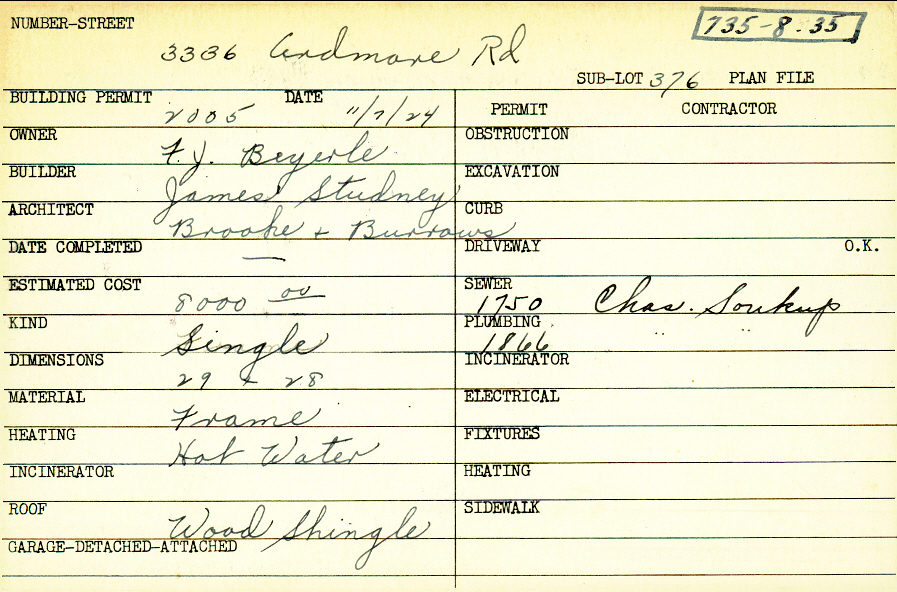 NUMBER-STREET 735-8-35
3336 Ardmore Rd
SUB-LOT 376 PLAN FILE
BUILDING PERMIT 2005 DATE 11/7/24
OWNER F. J. Beyerle
BUILDER James Studney
ARCHITECT Brooke + Burrows
DATE COMPLETED —
ESTIMATED COST 8000 00
KIND Single
DIMENSIONS 29 x 28
MATERIAL Frame
HEATING Hot Water
INCINERATOR
ROOF Wood Shingle
GARAGE-DETACHED-ATTACHED
PERMIT CONTRACTOR
OBSTRUCTION
EXCAVATION
CURB
DRIVEWAY O.K.
SEWER 1750 Chas. Soukup
PLUMBING 1866 " "
INCINERATOR
ELECTRICAL
FIXTURES
HEATING
SIDEWALK